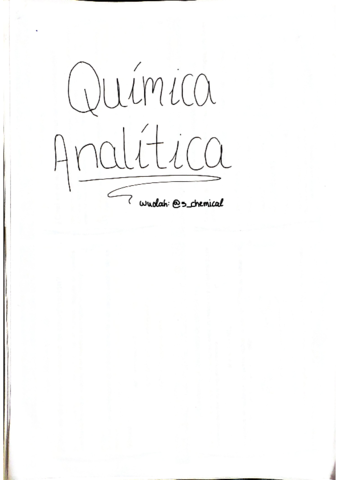 Química
Analítica
wuolah: @s_chemical